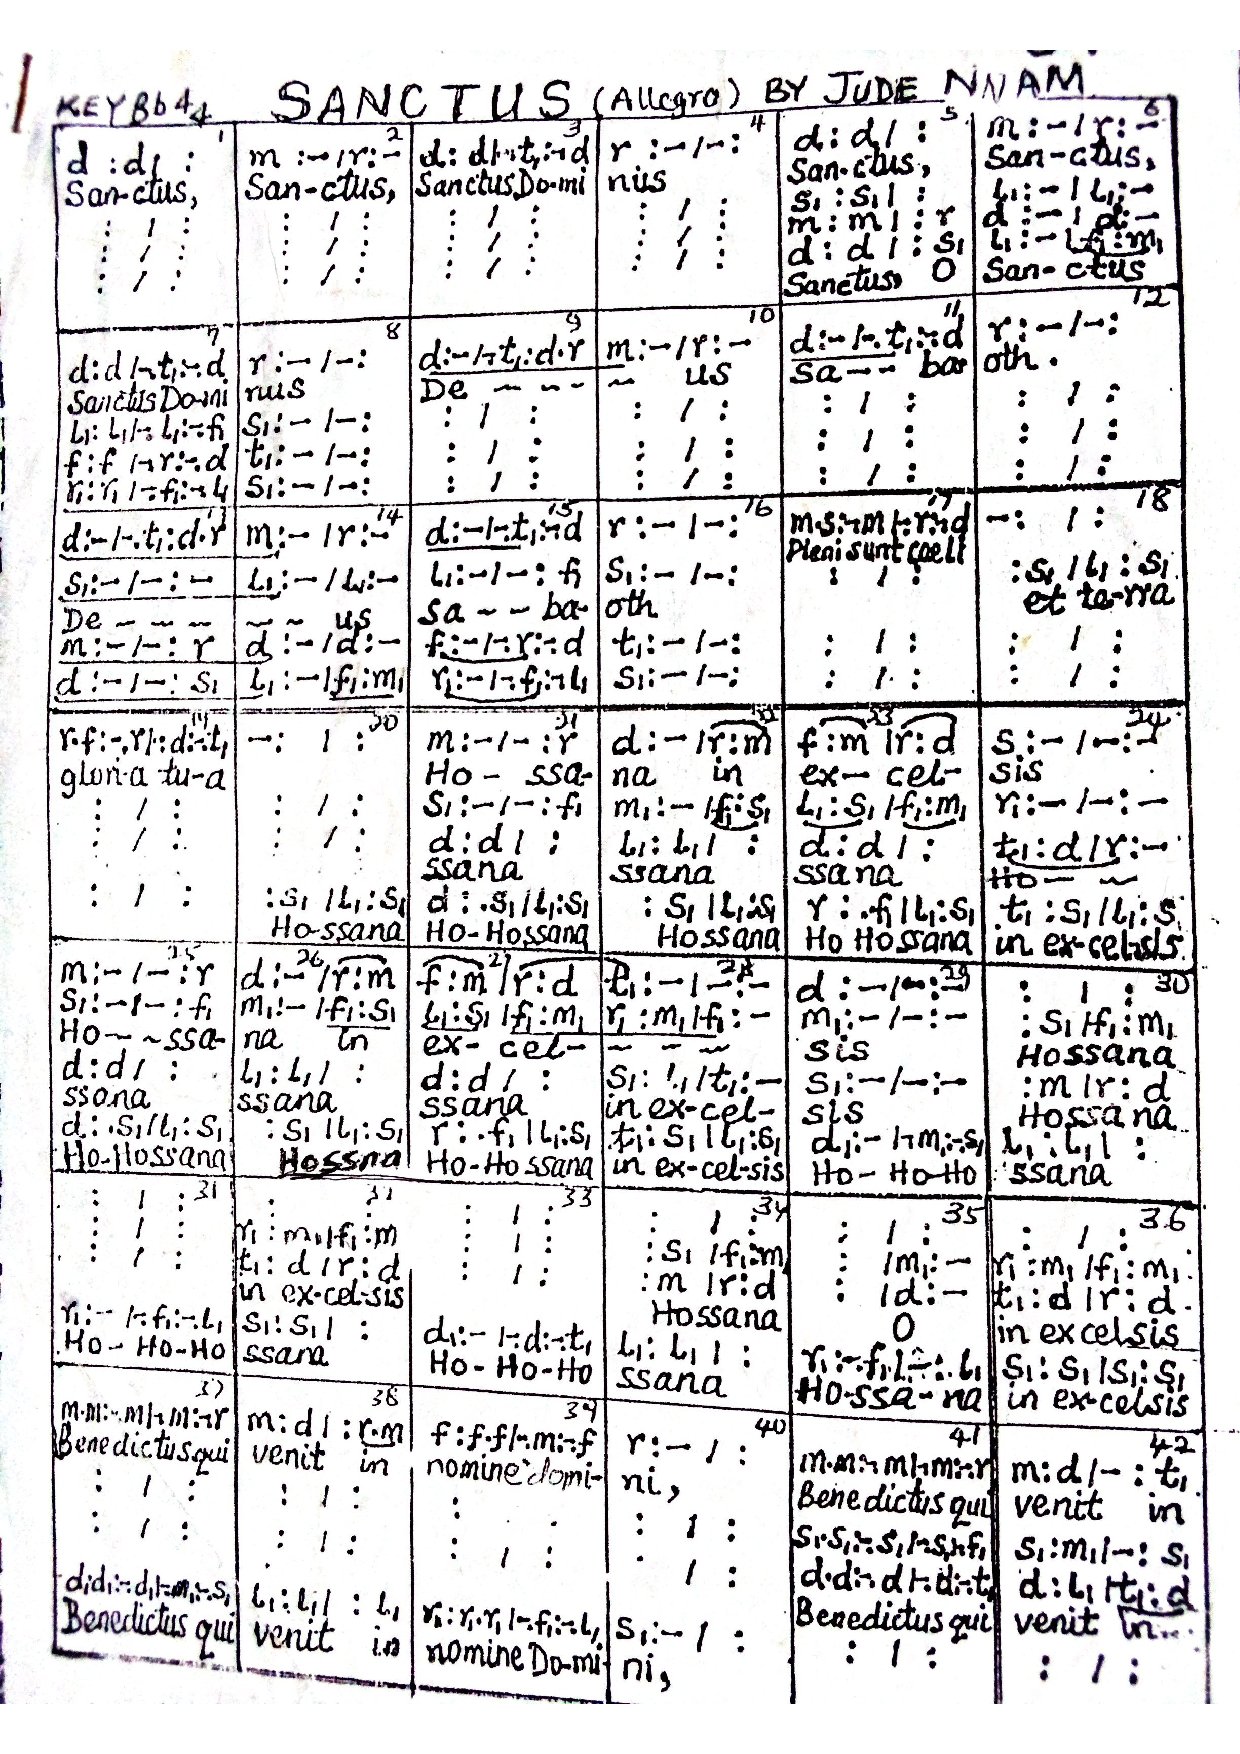 KEY Bb 4/4 SANCTUS (Allegro) BY JUDE NNAM
1 2 3 4 5 6
d :d / : m :-/r:- d: d/-.t₁:-d r :-/-: d: d/ : m:-/r:-
San-ctus, San-ctus, Sanctus Do-mi nus San-ctus, San-ctus,
: / : : / : : / : : / : s₁:s₁/ : l₁:-/l₁:-
: / : : / : : / : : / : m:m/ :r d:-/d:-
: / : : / : : / : : / : d:d/ :s₁ l₁:-/f₁:m₁
Sanctus, O San-ctus
7 8 9 10 11 12
d:d/-.t₁:-d r:-/-: d:-/-.t₁:d.r m:-/r:- d:-/-.t₁:-d r:-/-:
Sanctus Do-mi nus De - - - - us Sa - - ba- oth.
l₁:l₁/-.l₁:-fi s₁:-/-: : / : : / : : / : : / :
f:f/-.r:-.d t₁:-/-: : / : : / : : / : : / :
r₁:r₁/-.f₁:-l₁ s₁:-/-: : / : : / : : / : : / :
13 14 15 16 17 18
d:-/-.t₁:d.r m:-/r:- d:-/-.t₁:-d r:-/-: m.s:-m/-.r:-d -: / :
Pleni sunt coeli
s₁:-/-:- l₁:-/l₁:- l₁:-/-:fi s₁:-/-: : / : :s₁/l₁:s₁
De - - - - - us Sa - - ba- oth et te-rra
m:-/-:r d:-/d:- f:-/-.r:-d t₁:-/-: : / : : / :
d:-/-:s₁ l₁:-/f₁:m₁ r₁:-/-.f₁:-l₁ s₁:-/-: : / : : / :
19 20 21 22 23 24
r.f:-.r/-:d:-t₁ -: / : m:-/-:r d:-/r:m f:m/r:d s:-/-:-
glori-a tu-a Ho- ssa- na in ex- cel- sis
: / : : / : s₁:-/-:f₁ m₁:-/f₁:s₁ l₁:s₁/f₁:m₁ r₁:-/-:-
: / : : / : d:d/ : l₁:l₁/ : d:d/ : t₁:d/r:-
ssana ssana ssana Ho - -
: / : :s₁/l₁:s₁ d:.s₁/l₁:s₁ :s₁/l₁:s₁ r:.f₁/l₁:s₁ t₁:s₁/l₁:s₁
Ho-ssana Ho-Hossana Hossana Ho Hossana in ex-cel-sis
25 26 27 28 29 30
m:-/-:r d:-/r:m f:m/r:d t₁:-/-:- d:-/-:- : / :
s₁:-/-:f₁ m₁:-/f₁:s₁ l₁:s₁/f₁:m₁ r₁:m₁/f₁:- m₁:-/-:- :s₁/f₁:m₁
Ho - - ssa- na in ex- cel- - - - sis Hossana
d:d/ : l₁:l₁/ : d:d/ : s₁:l₁/t₁:- s₁:-/-:- :m/r:d
ssana ssana ssana in ex-cel- sis Hossana
d:.s₁/l₁:s₁ :s₁/l₁:s₁ r:.f₁/l₁:s₁ t₁:s₁/l₁:s₁ d₁:-/-.m₁:-s₁ l₁:l₁/ :
Ho-Hossana Hossna Ho-Hossana in ex-cel-sis Ho- Ho-Ho ssana
31 33 34 35 36
: / : : / : : / : : / : : / :
: / : r₁:m₁/f₁:m : / : :s₁/f₁:m₁ : /m₁:- r₁:m₁/f₁:m₁
: / : t₁:d/r:d : / : :m/r:d : /d:- t₁:d/r:d
in ex-cel-sis Hossana O in excelsis
r₁:-/-.f₁:-.l₁ s₁:s₁/ : d₁:-/-.d:-t₁ l₁:l₁/ : r₁:-.f₁/-:.l₁ s₁:s₁/s₁:s₁
Ho- Ho-Ho ssana Ho- Ho-Ho ssana Ho-ssa-na in ex-celsis
37 38 39 40 41 42
m.m:-.m/-.m:-r m:d/ :r.m f:f.f/-.m:-f r:-/ : m.m:-m/-m:-r m:d/-:t₁
Benedictus qui venit in nomine domi- ni, Benedictus qui venit in
: / : : / : : : / : s₁.s₁:-.s₁/-.s₁:-f₁ s₁:m₁/-:s₁
: / : : / : : / : : / : d.d:-d/-.d:-t₁ d:l₁/t₁:d
Benedictus qui venit in
d₁d₁:-.d₁/-.m₁:-.s₁ l₁:l₁/ :l₁ r₁:r₁.r₁/-.f₁:-.l₁ s₁:-/ : : / : : / :
Benedictus qui venit in nomine Do-mi- ni,